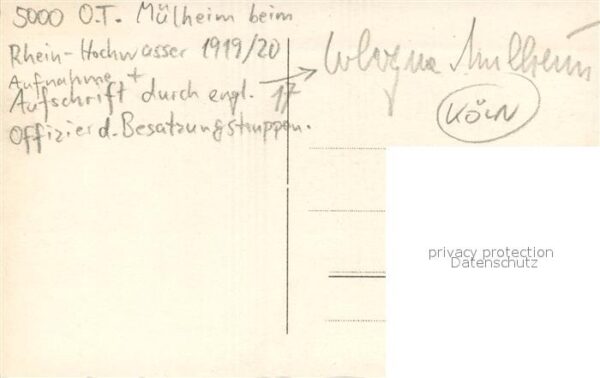 5000 O.T. Mülheim beim
Rhein-Hochwasser 1919/20
Aufnahme +
Aufschrift durch engl.
Offizier d. Besatzungstruppen.
17
Cologne Mulheim
KÖLN
privacy protection
Datenschutz